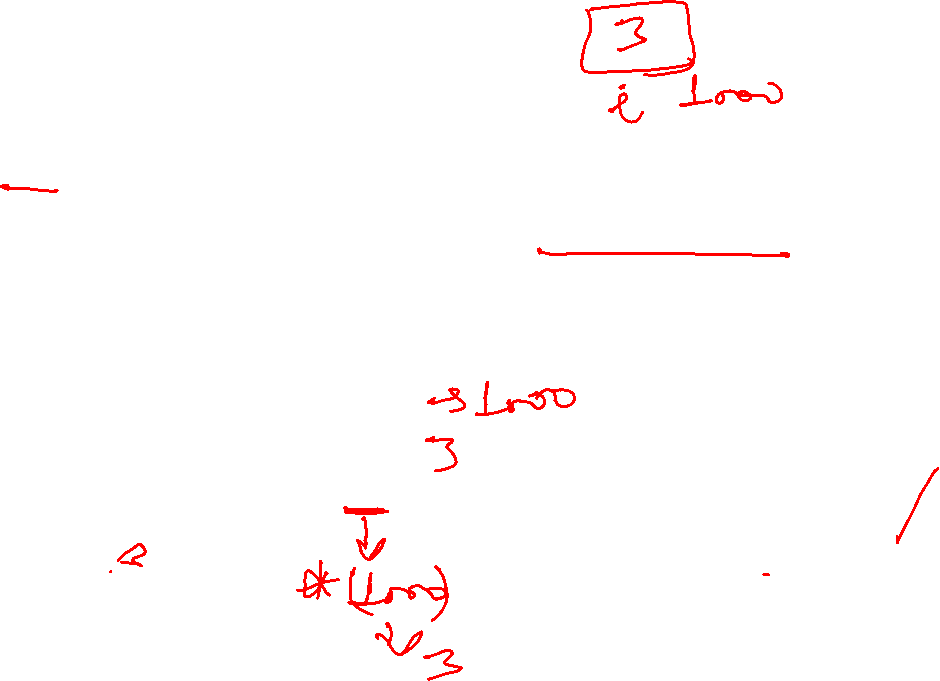 3
i 1000
→ 1000
3
*(1000)
3